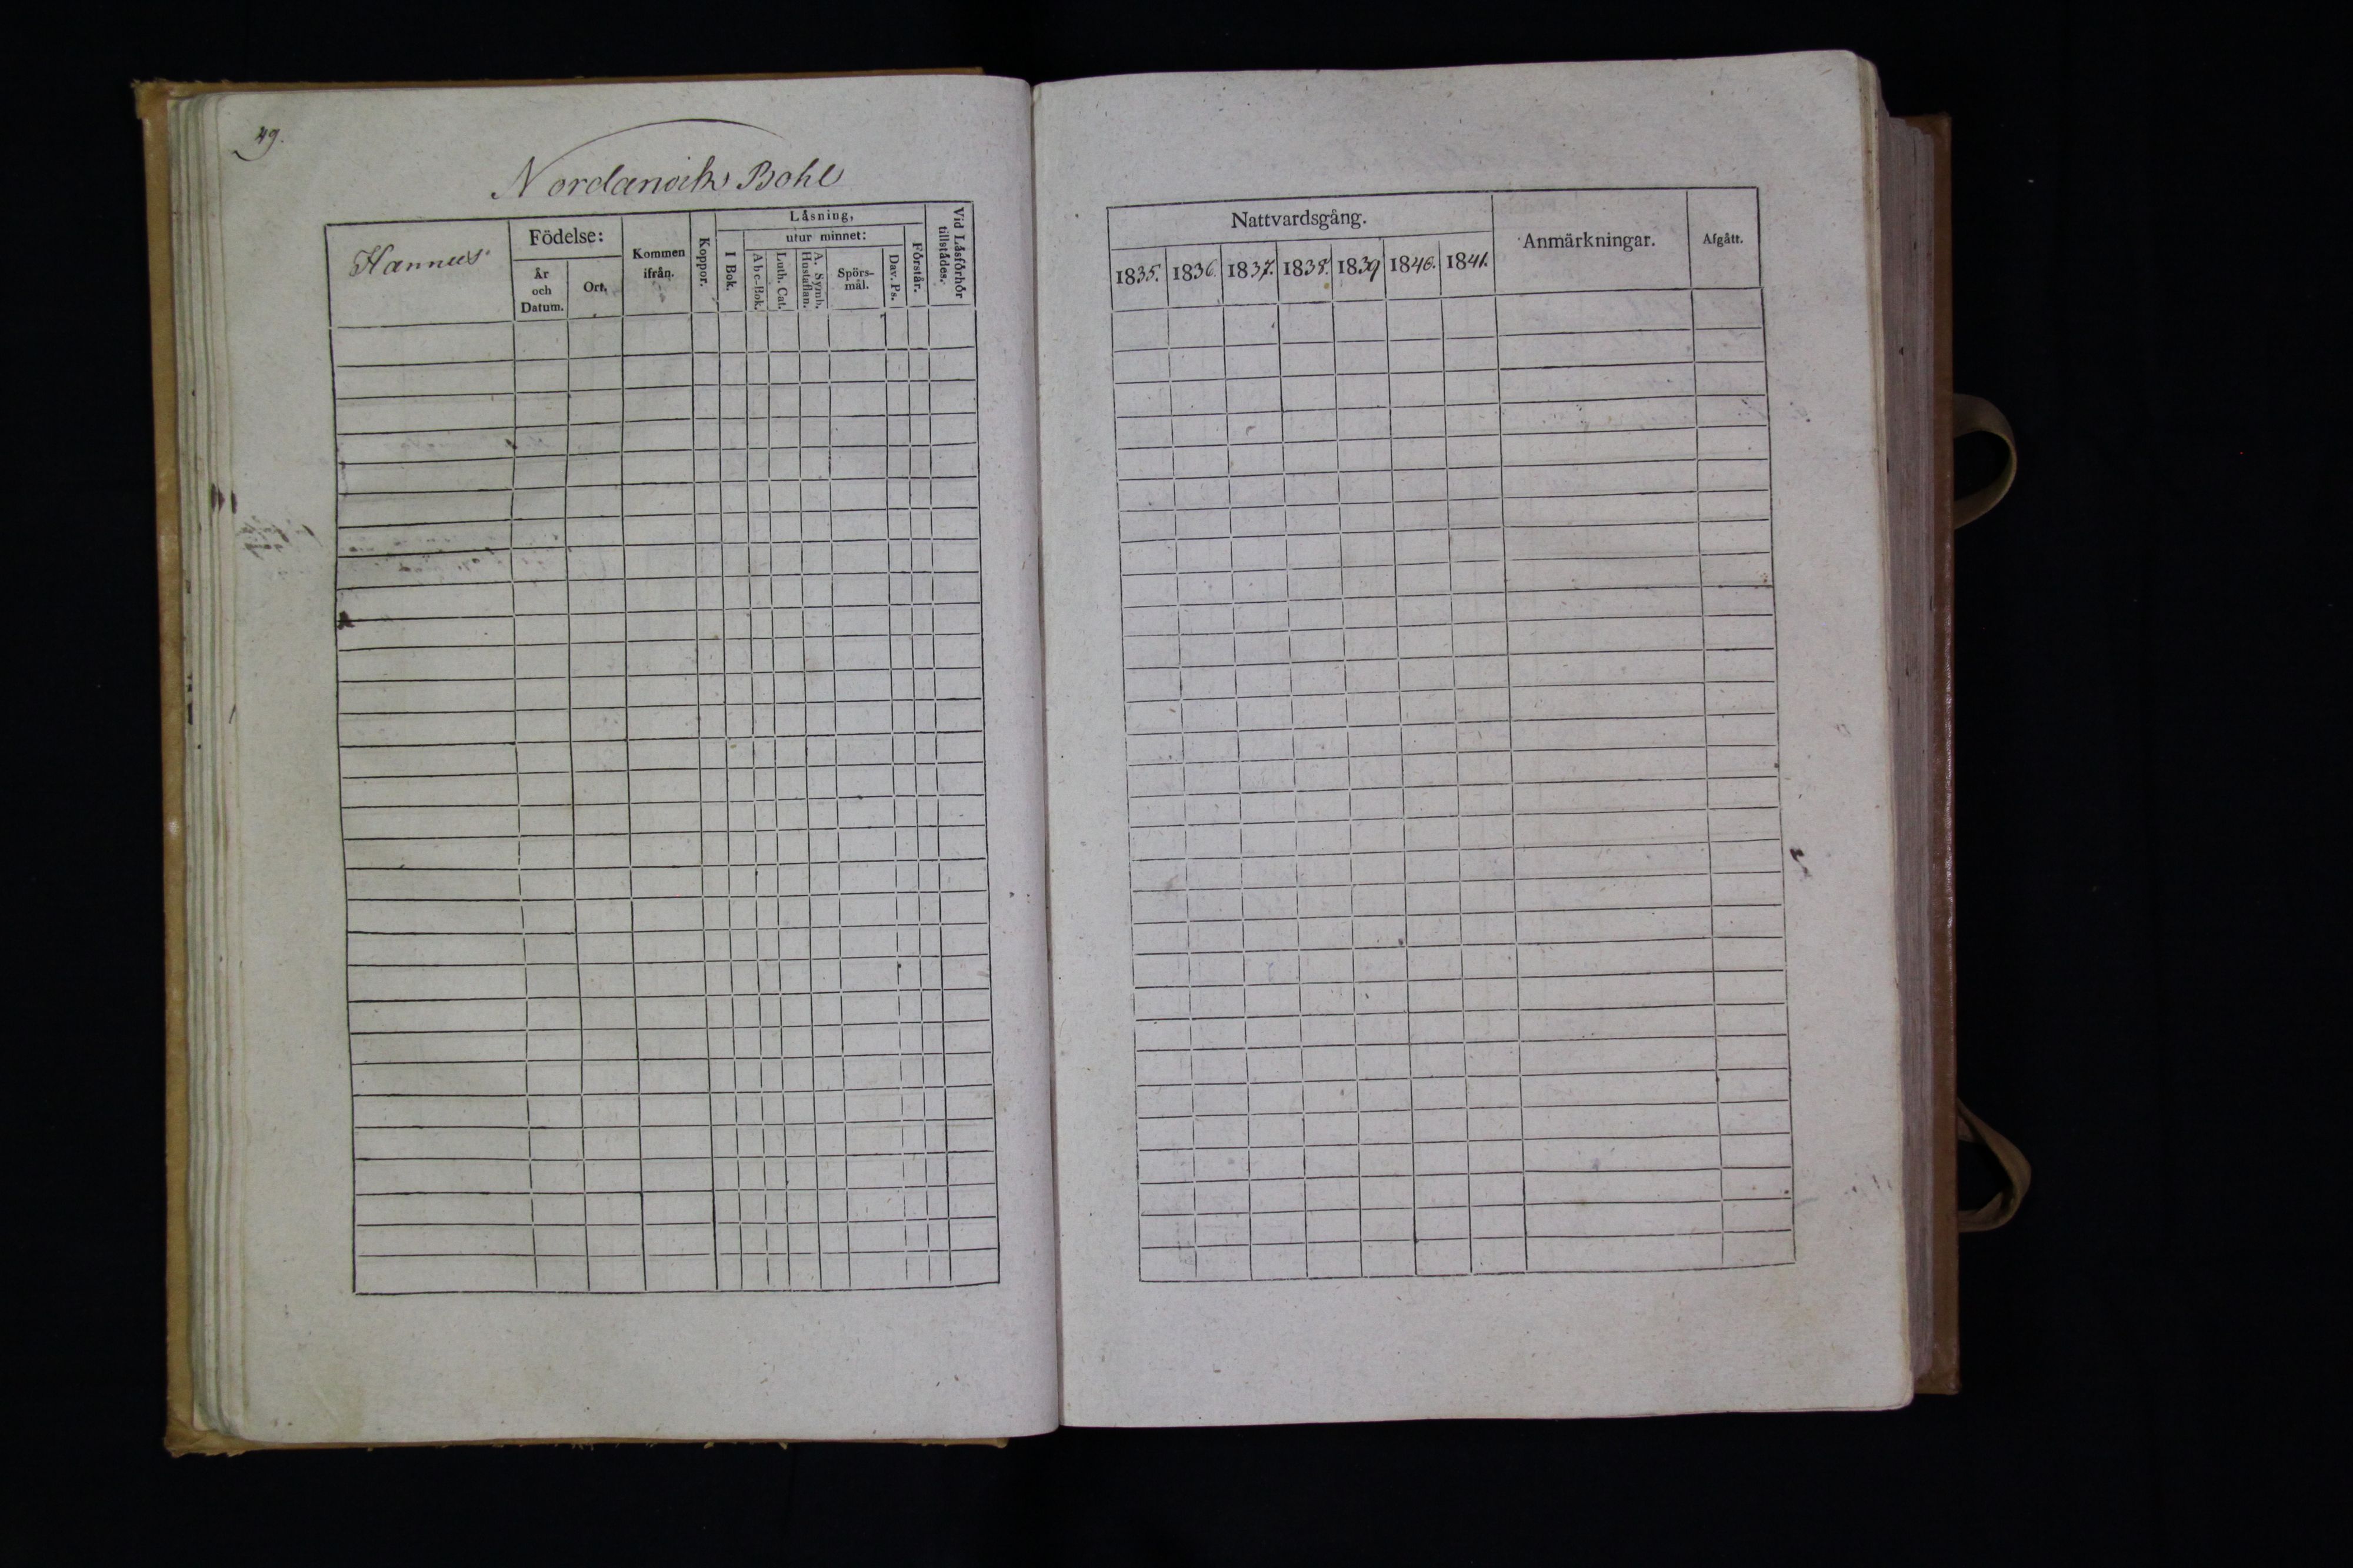 49.
Nordanvik Bohl
Hannus
Födelse:
År
och
Datum.
Ort.
Kommen
ifrån.
Koppor.
Låsning,
I Bok.
utur minnet:
Abc-Bok.
Luth. Cat.
A. Symb.
Hustaflan.
Spörs-
mål.
Dav. Ps.
Förstår.
Vid Låsförhör
tillstädes.
Nattvardsgång.
1835. 1836. 1837. 1838. 1839 1840. 1841.
Anmärkningar.
Afgått.